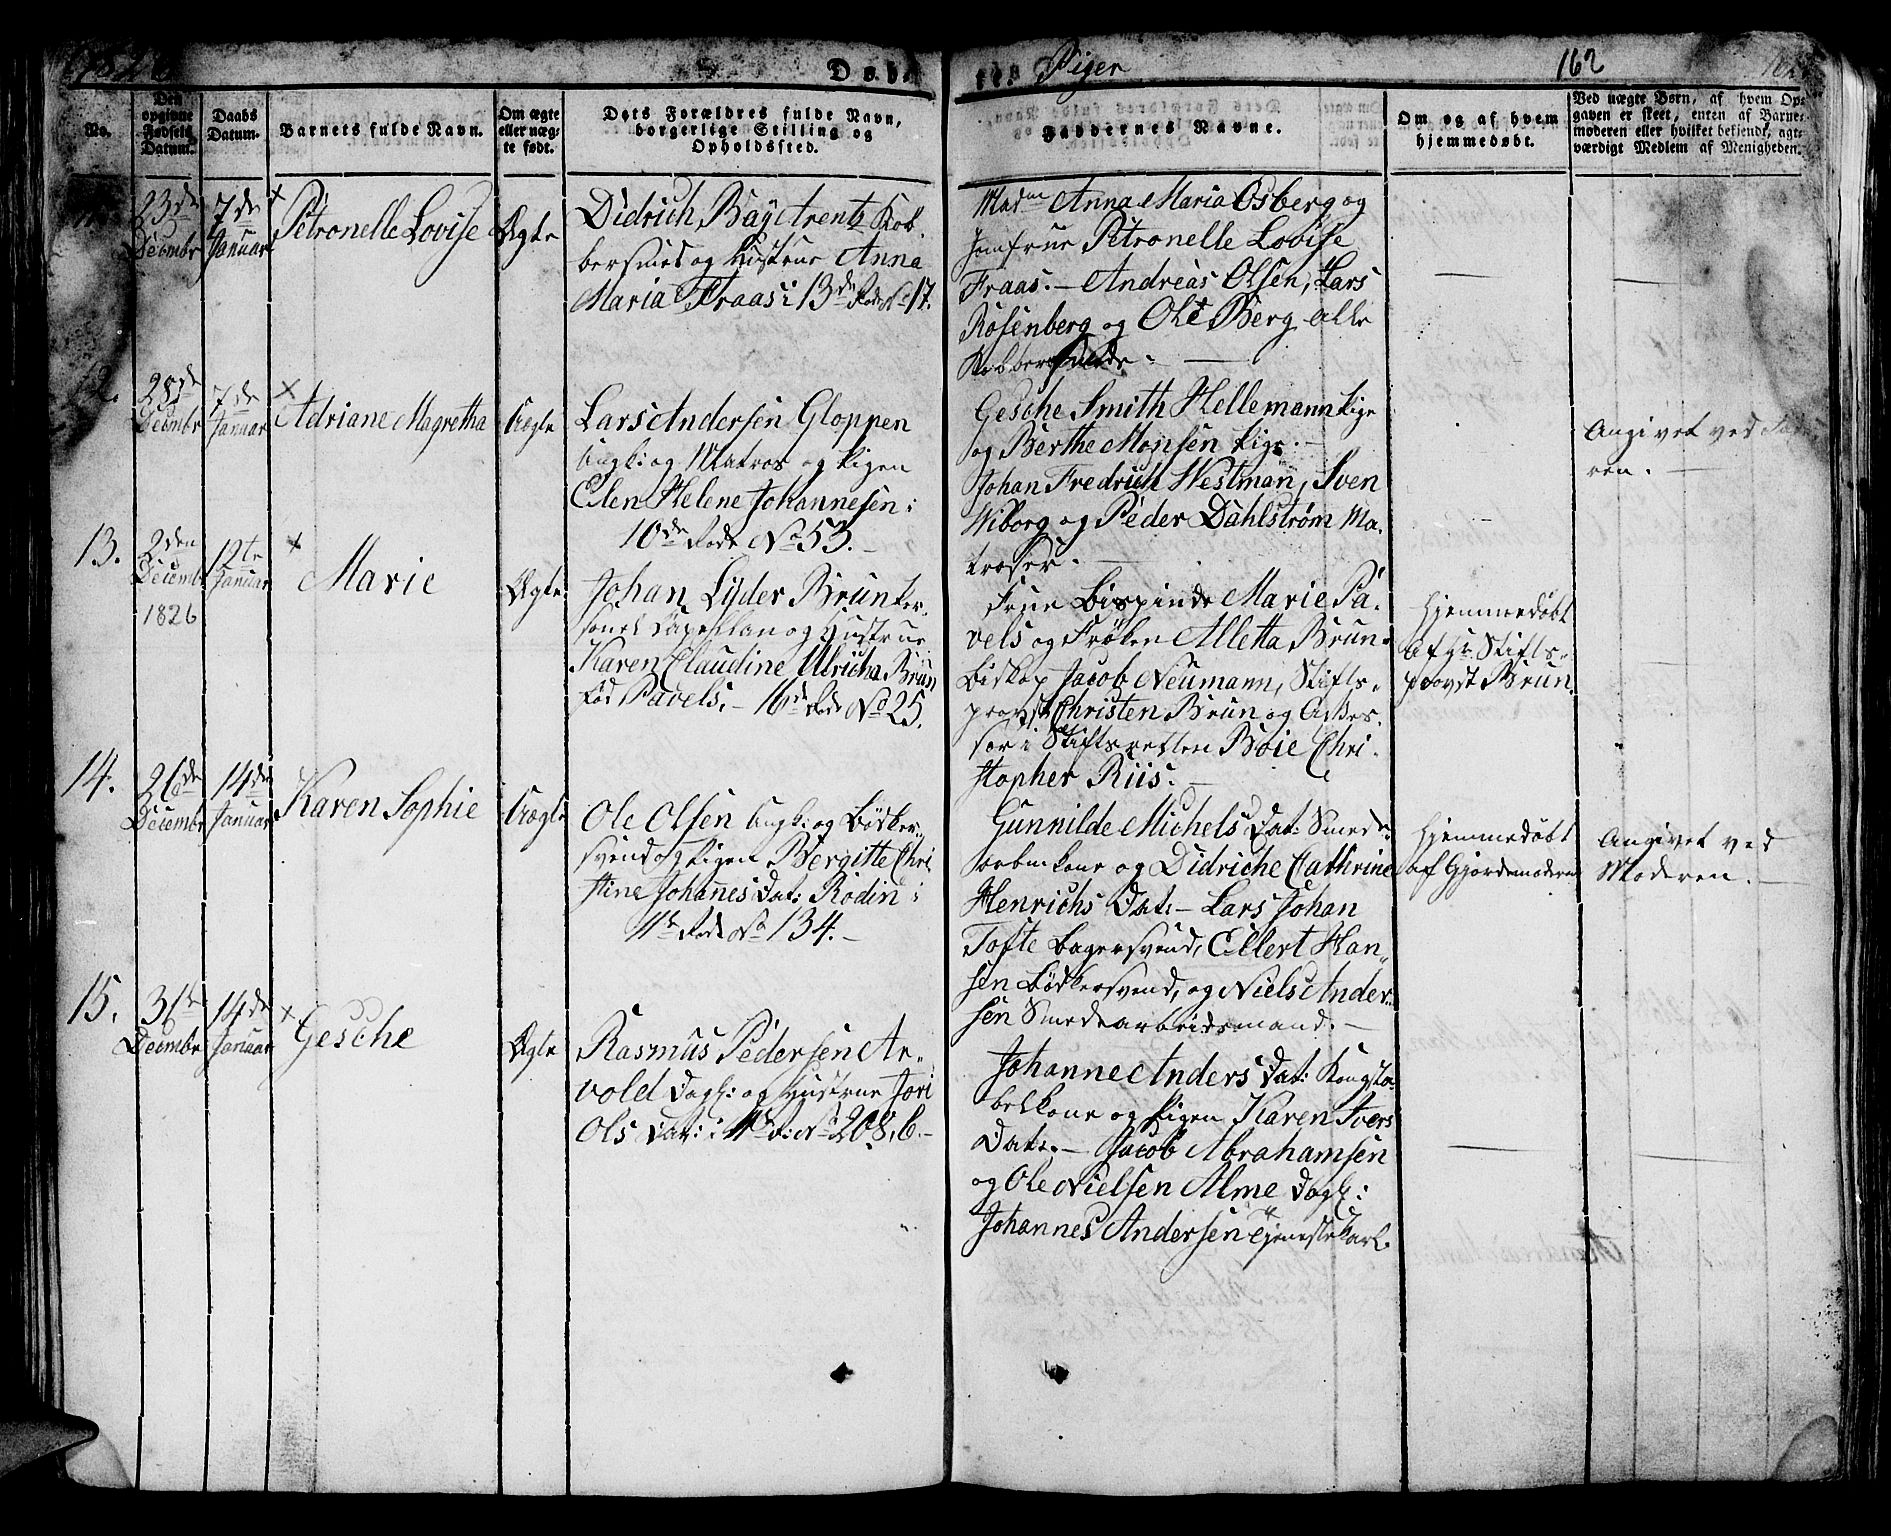 Døb- te. Piger 162
No.
Den opgivne Fødsels Datum.
Daabs Datum.
Barnets fulde Navn.
Om ægte eller uæg- te født.
Dets Forældres fulde Navn,
borgerlige Stilling og
Opholdssted.
Faddernes Navne.
Om og af hvem
hjemmedøbt.
Ved uægte Børn, af hvem Op-
gaven er skeet, enten af Barne-
moderen eller hvilket bekjendt, agt-
værdigt Medlem af Menigheden.
23de Decembr
7de Januar
Petronelle Lovise
Ægte
Didrich Bay Arentz Kob-
bersmed og Hustrue Anna
Maria Fraas i 13de Rode No 17.
Madm Anna Maria Osberg og
Jomfrue Petronelle Lovise
Fraas. – Andreas Olsen, Lars
Rosenberg og Ole Berg alle
Kobbersmede. –
12.
28de Decembr
7de Januar
Adriane Magretha
Uægte
Lars Andersen Gloppen
Ungk: og Matros og Pigen
Elen Helene Johannesen i
10de Rode No 53. –
Gesche Smith Hellemann Pige
og Berthe Monsen Pige. –
Johan Fredrich Westman, Sven
Wiborg og Peder Dahlstrøm Ma-
troser. –
Angivet ved Fad
ren. –
13.
2den Decembr
1826
12te Januar
Marie
Ægte
Johan Lyder Brun Per-
sonel Capellan og Hustrue
Karen Claudine Ulricha Brun
fød Pavels. – 16de Rode No 25.
Frue Bispinde Marie Pa-
vels og Frøken Alletta Brun.
Biskop Jacob Neumann, Stifts-
provst Christen Brun og Asses-
sor i Stiftsretten Boie Chri-
stopher Riis. –
Hjemmedøbt
af Hr Stifts-
provst Brun.
14.
26de Decembr
14de Januar
Karen Sophie
Uægte
Ole Olsen Ungk: og Bødker-
svend og Pigen Bergitte Chri-
stine Johanes Dat: Rodin i
11te Rode No 134. –
Gunnilde Michels Dat: Smede-
arb: kone og Didriche Cathrine
Henrichs Dat: – Lars Johan
Tofte Bagersvend, Ellert Han-
sen Bødkersvend, og Niels Ander-
sen Smedearbeidsmand. –
Hjemmedøbt
af Gjordemoderen
Angivet ved
Moderen. –
15.
31te Decembr
14de Januar
Gesche
Ægte
Rasmus Pedersen Ar-
vold Dagk: og Hustrue Jori
Ols Dat: i 11te R: No 208, b. –
Johanne Anders Dat: Kongsta-
belkone og Pigen Karen Ivers
Dat: – Jacob Abrahamsen
og Ole Nielsen Alme Dagk:
Johannes Andersen Tjenestekarl.